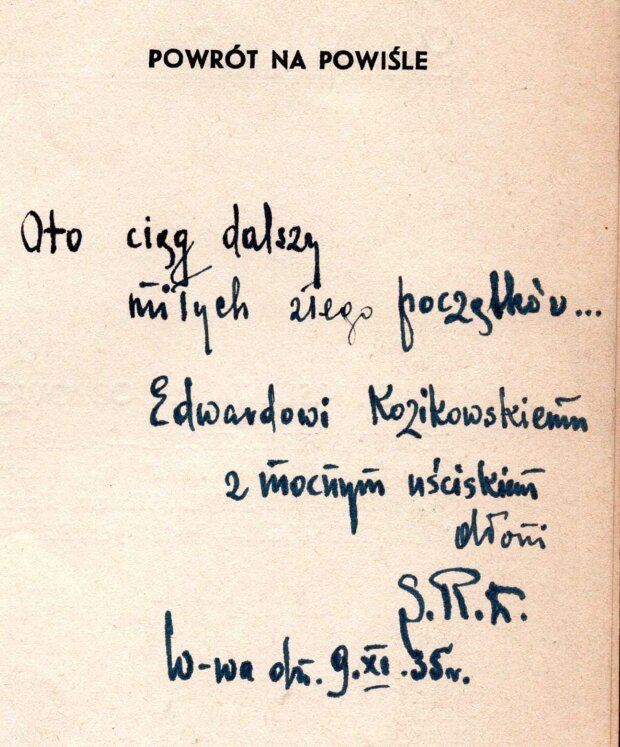 POWRÓT NA POWIŚLE
Oto ciąg dalszy
miłych złego początków...
Edwardowi Kozikowskiemu
z mocnym uściskiem
dłoni
S.R.D.
W-wa dn. 9.XI.35r.